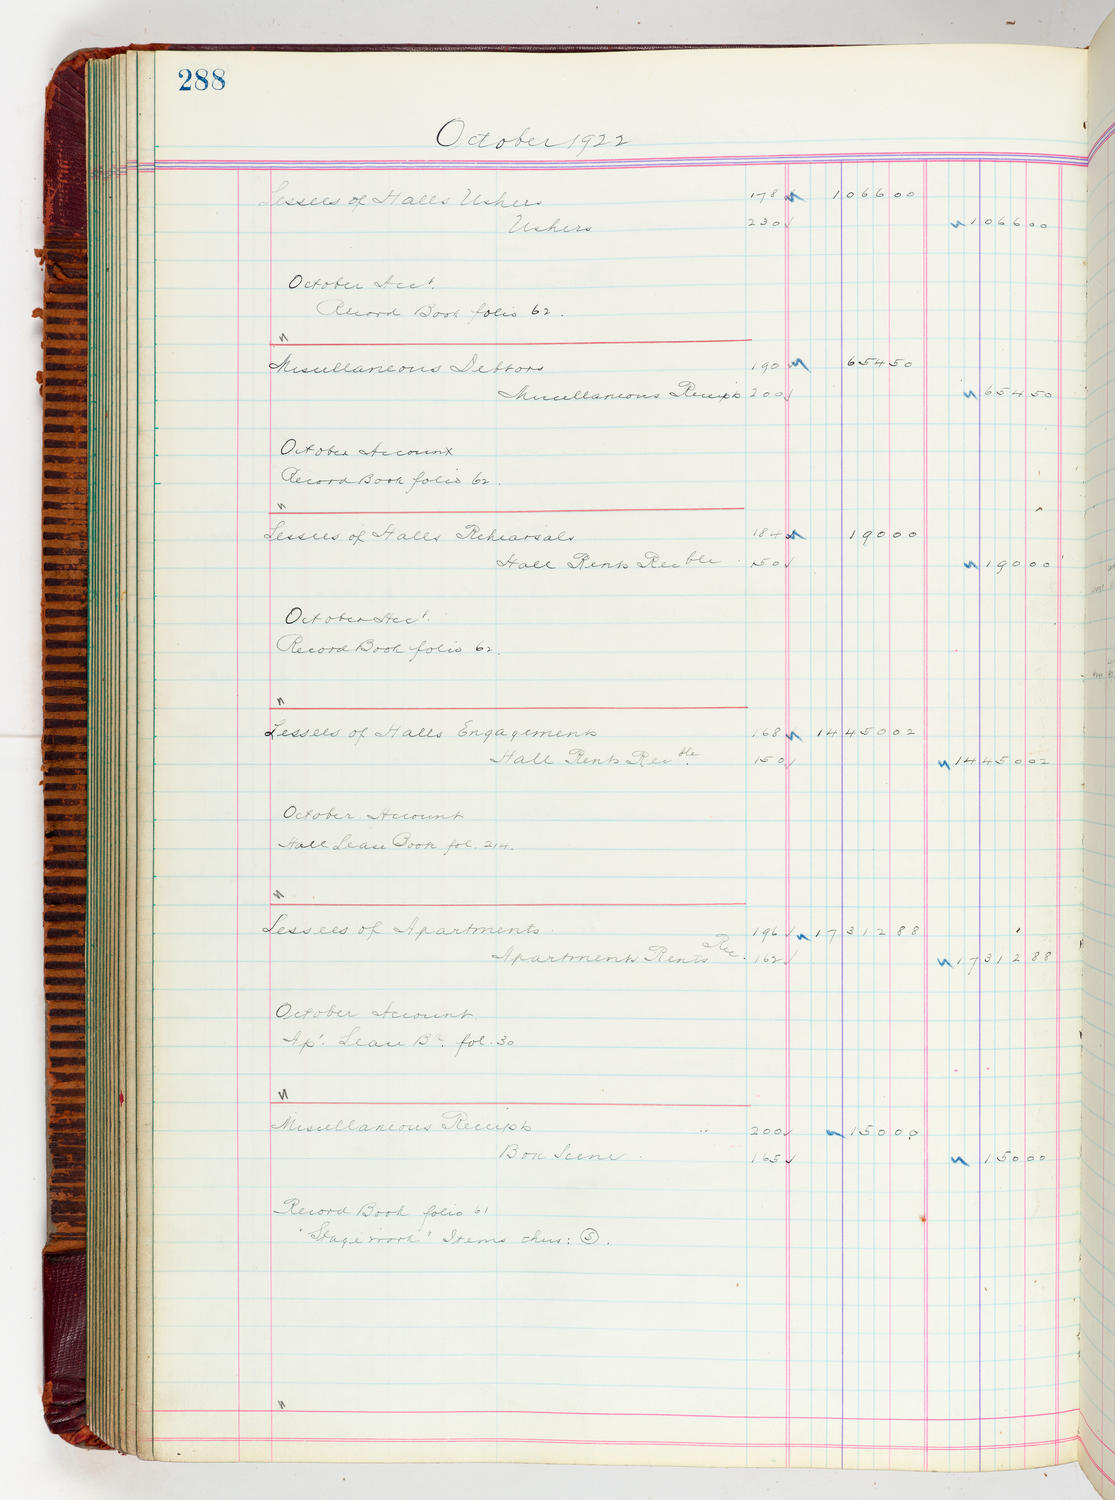 288
October 1922
Lessees of Halls Ushers 178 106600
Ushers 230 106600
October Acct.
Record Book folio 62.
"
Miscellaneous Debtors 190 65450
Miscellaneous Receipts 200 65450
October Account
Record Book folio 62.
"
Lessees of Halls Rehearsals 184 19000
Hall Rents Rec ble 150 19000
October Acct.
Record Book folio 62.
"
Lessees of Halls Engagements 168 1445002
Hall Rents Rec ble. 150 1445002
October Account
Hall Lease Book fol. 214.
"
Lessees of Apartments 196 1731288
Apartments Rents Rec. 162 1731288
October Account
Apt. Lease Bk. fol. 30
"
Miscellaneous Receipts " 200 15000
Box Scene 165 15000
Record Book folio 61
"Stage work" Items thus: (S).
"